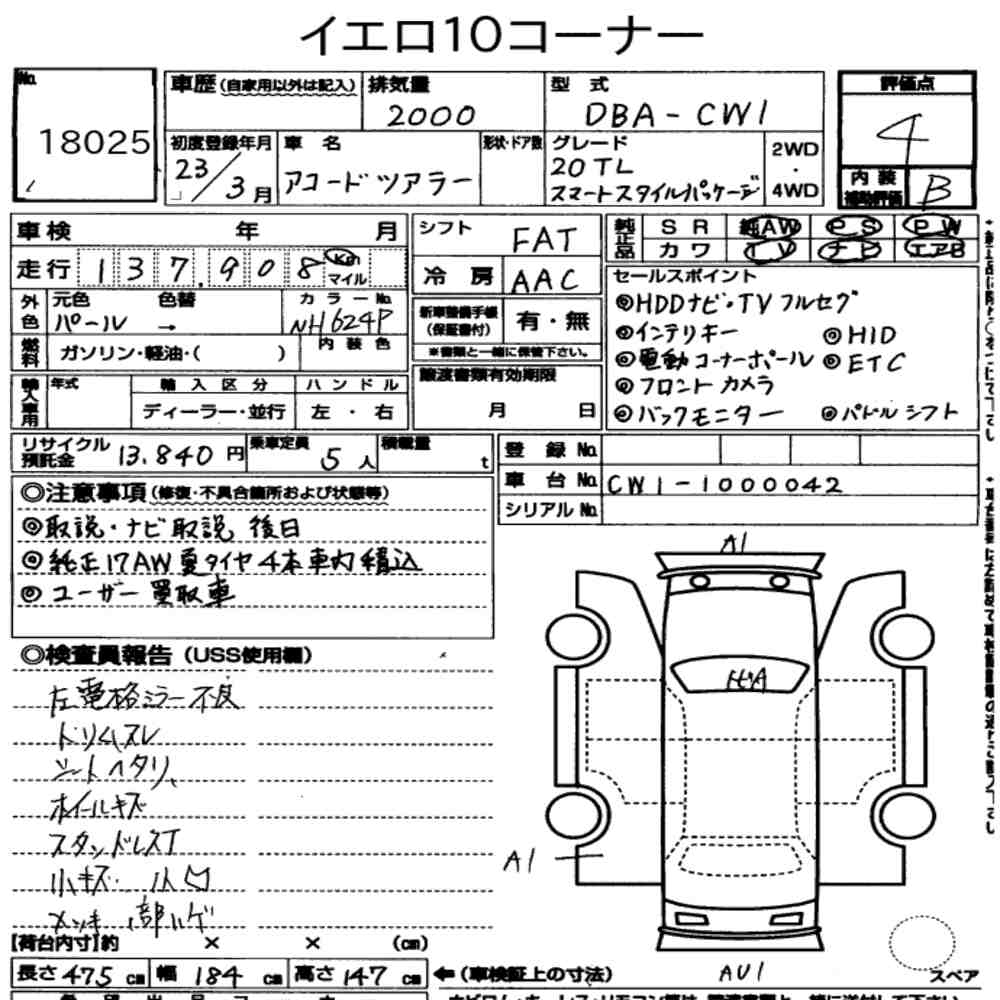 イエロ10コーナー
No.
18025
車歴(自家用以外は記入)
排気量
2000
型式
DBA-CW1
評価点
4
内装
補助評価
B
初度登録年月
23/3月
車名
アコードツアラー
形状・ドア数
グレード
20TL
スマートスタイルパッケージ
2WD
・
4WD
車検 年 月
走行 137,908 Km マイル
シフト
FAT
冷房
AAC
純正品
SR 純AW PS PW
カワ TV ナビ エアB
外色
元色 色替
パール →
カラーNo.
NH624P
燃料
ガソリン・軽油・( )
内装色
新車整備手帳
(保証書付)
有・無
※書類と一緒に保管下さい。
輸入車用
年式
輸入区分
ディーラー・並行
ハンドル
左・右
譲渡書類有効期限
月 日
セールスポイント
◎HDDナビ・TV フルセグ
◎インテリキー ◎HID
◎電動コーナーポール ◎ETC
◎フロントカメラ
◎バックモニター ◎パドルシフト
リサイクル
預託金
13,840円
乗車定員
5人
積載量
t
登録No.
車台No. CW1-1000042
シリアルNo.
◎注意事項(修復・不具合箇所および状態等)
◎取説・ナビ取説 後日
◎純正17AW夏タイヤ4本車内積込
◎ユーザー買取車
◎検査員報告(USS使用欄)
左電格ミラー不良
ドリムスレ
シートヘタリ、
ホイールキズ
スタッドレスT
小キズ・小凹
メッキ一部ハゲ
A1
飛A
A1
AU1
スペア
【荷台内寸】約 × × (cm)
長さ475cm 幅184cm 高さ147cm
←(車検証上の寸法)